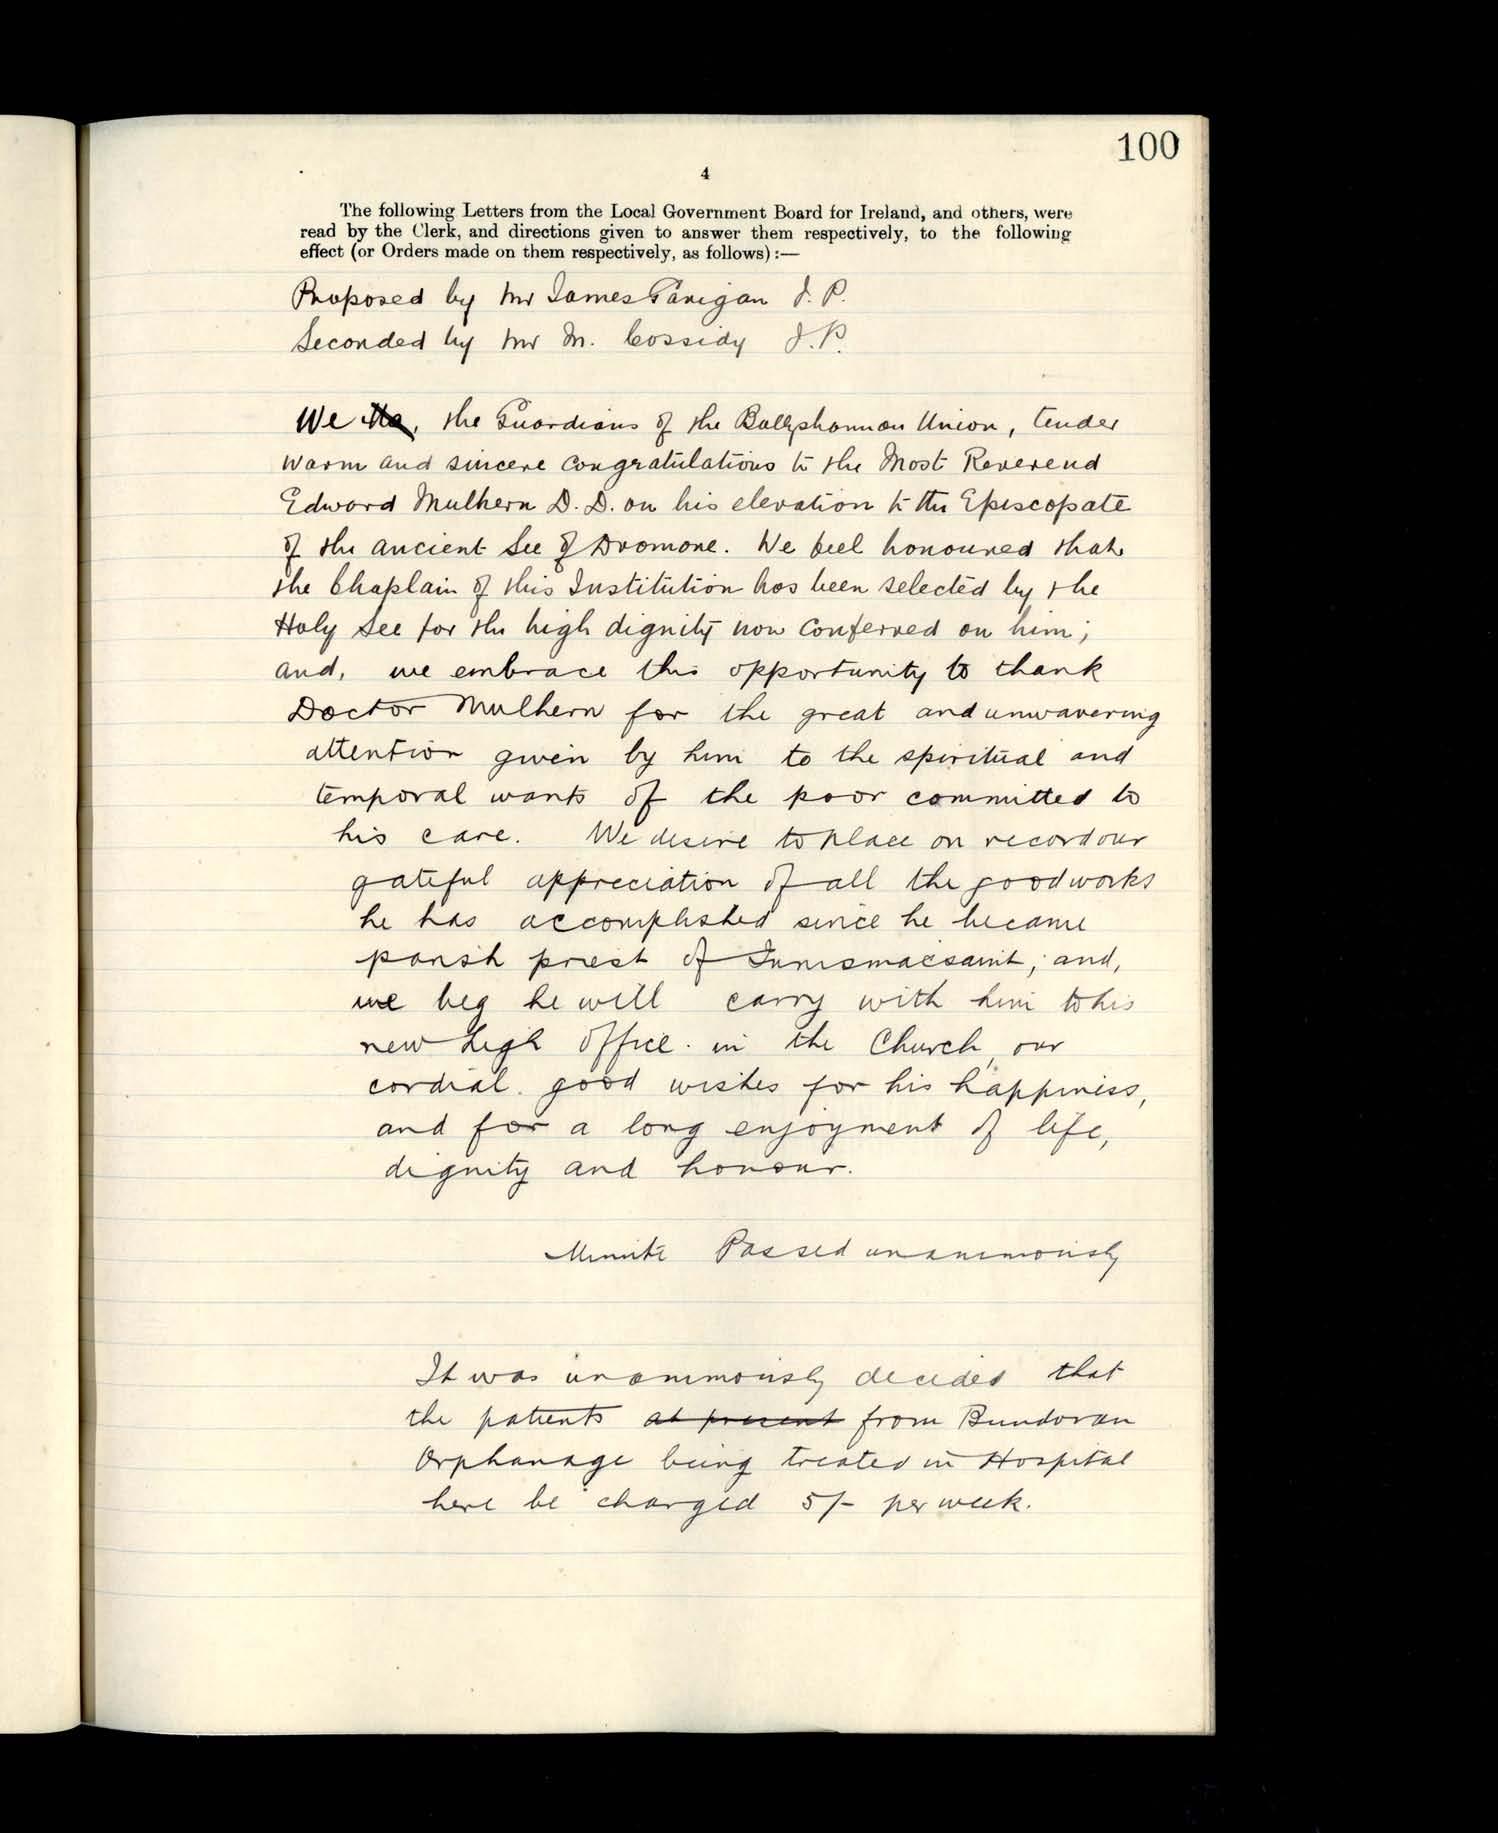 100
4
The following Letters from the Local Government Board for Ireland, and others, were
read by the Clerk, and directions given to answer them respectively, to the following
effect (or Orders made on them respectively, as follows) :—
Proposed by Mr James J. P.
Seconded by Mr M. Cassidy J. P.
We , the Guardians of the Ballyshannon Union, tender
warm and sincere congratulations to the Most Reverend
Edward Mulhern D. D. on his elevation to the Episcopate
of the ancient See of Dromore. We feel honoured that
the Chaplain of this Institution has been selected by the
Holy See for the high dignity now conferred on him;
and, we embrace this opportunity to thank
Doctor Mulhern for the great and unwavering
attention given by him to the spiritual and
temporal wants of the poor committed to
his care. We desire to place on record our
gateful appreciation of all the good works
he has accomplished since he became
parish priest of Innismacsaint; and,
we beg he will carry with him to his
new high office in the Church, our
cordial good wishes for his happiness,
and for a long enjoyment of life,
dignity and honour.
Minute Passed unanimously
It was unanimously decided that
the patients at present from Bundoran
Orphanage being treated in Hospital
here be charged 5/- per week.